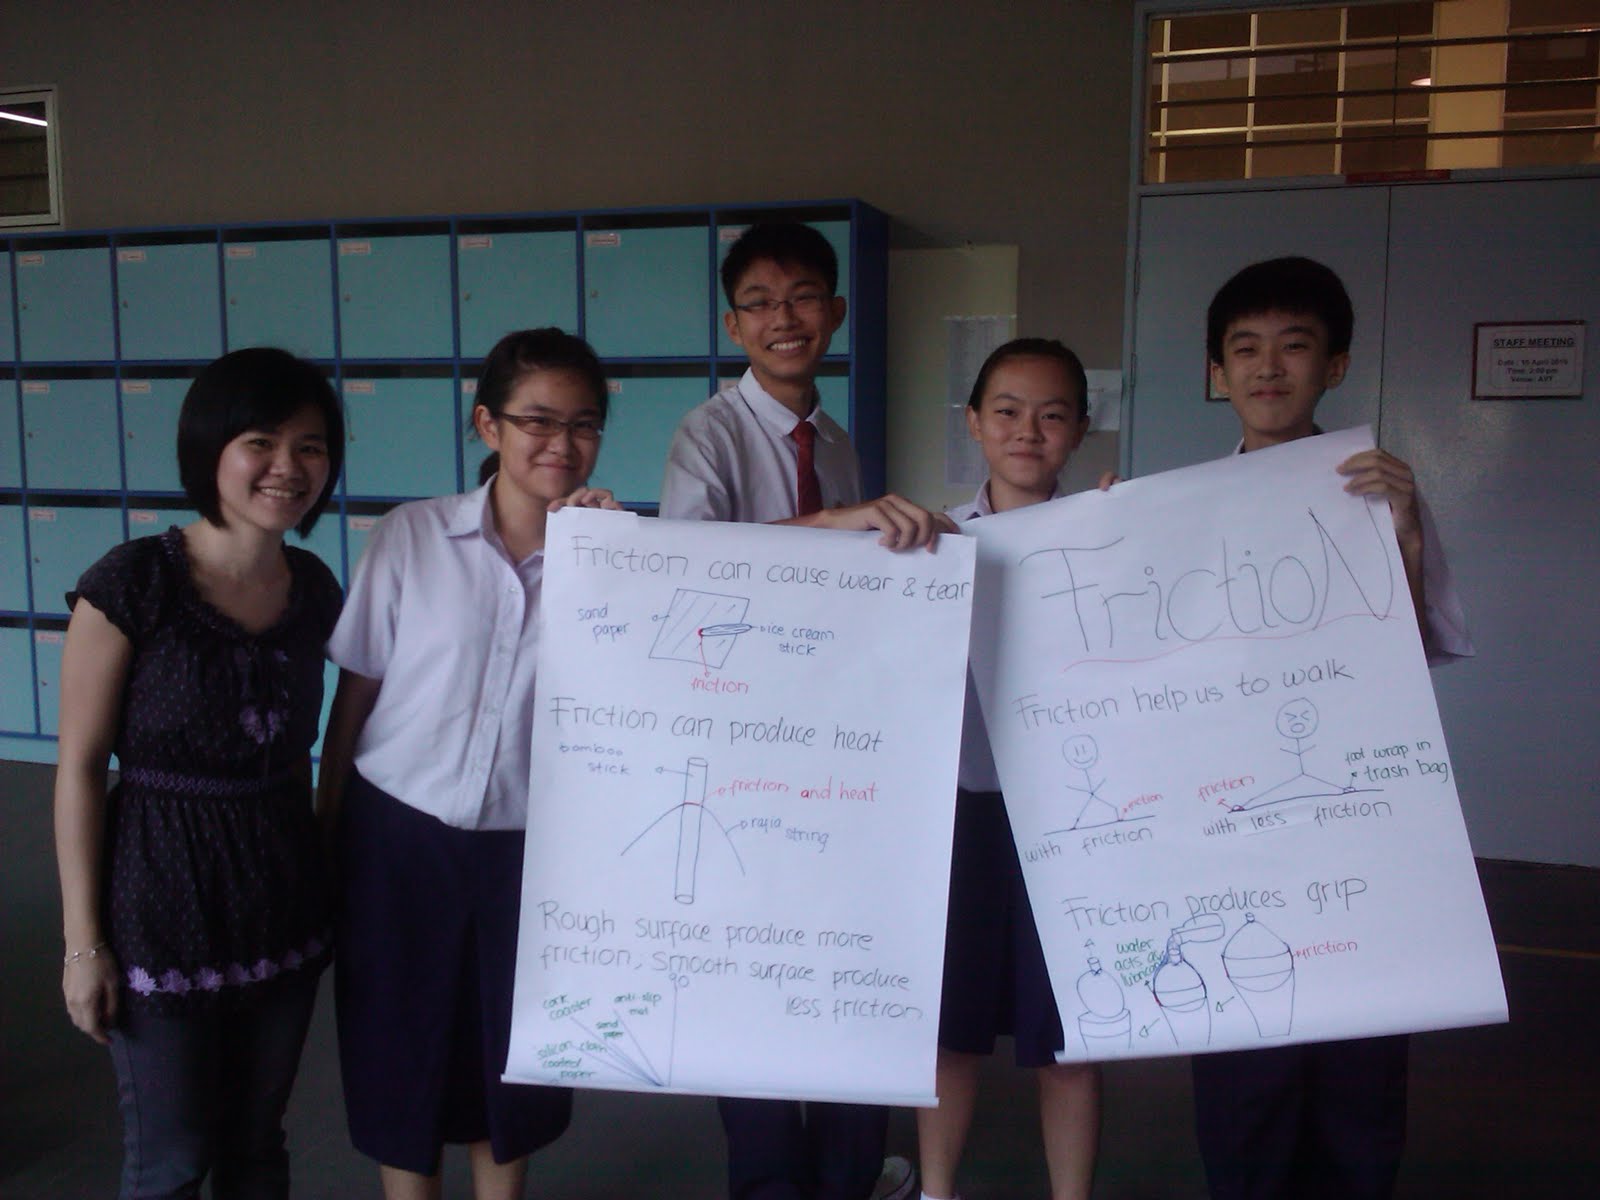 STAFF MEETING
Date : 15 April 2010
Time: 2:00 pm
Venue: AVT
Friction can cause wear & tear
sand
paper
ice cream
stick
friction
Friction can produce heat
bamboo
stick
friction and heat
rafia
string
Rough surface produce more
friction, smooth surface produce
less friction
90
cork
coaster
anti-slip
mat
sand
paper
silicon cloth
coated
paper
FrictioN
Friction help us to walk
friction
with friction
friction
foot wrap in
trash bag
with less friction
Friction produces grip
water
acts as
lubricant
friction